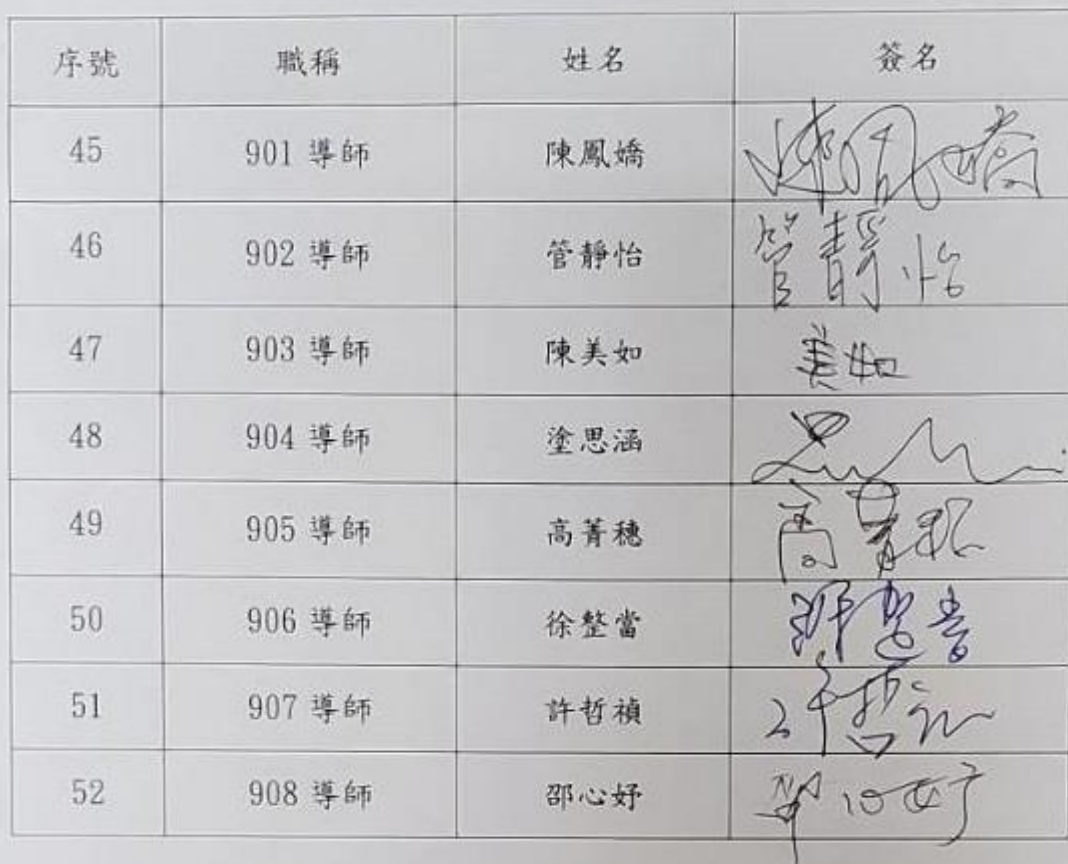 序號 職稱 姓名 簽名
45 901 導師 陳鳳嬌 陳鳳嬌
46 902 導師 管靜怡 管靜怡
47 903 導師 陳美如 美如
48 904 導師 塗思涵
49 905 導師 高菁穗 高菁穗
50 906 導師 徐整當
51 907 導師 許哲禎 許哲禎
52 908 導師 邵心妤 邵心妤